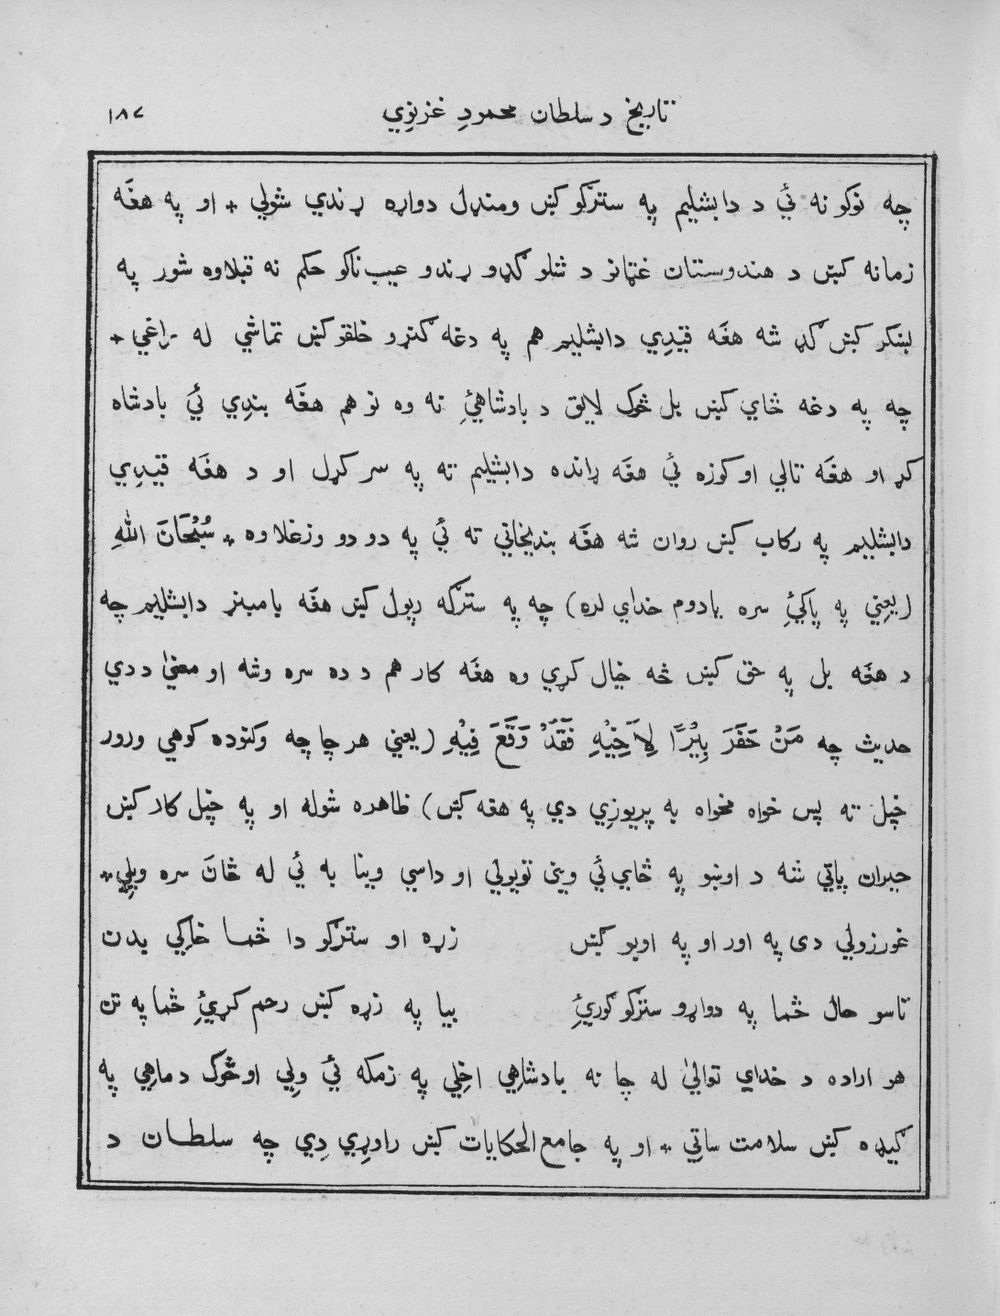 تاریخ د سلطان محمودِ غزنوِي ١٨٧
چه نوکو نه ئي د دابشلیم په سترګو کښ ومنډل دواړه ړندي شولي + او په هغَه
زمانه کښ د هندوستان غټانو د شلو ګډو ړندو عیب ناکو حکم نه قبلاوه شور په
لښکر کښ ګډ شه هغَه قیدِي دابشلیم هم په دغه ګنړو خلقو کښ تماشي له راغي +
چه په دغه ځاي کښ بل څوک لایق د بادشاهیٔ نه وه نو هم هغَه بندِي ئي بادشاه
کړ او هغَه تالي او کوزه ئي هغَه ړانده دابشلیم ته په سر کړل او د هغَه قیدِي
دابشلیم په رکاب کښ روان شه هغَه بندیخاني ته ئي په دو دو وزغلاوه + سُبْحَانَ اللّٰهِ
(یعنِي په پاکیٔ سره یادوم خداي لره) چه په سترګه رپول کښ هغَه بامبنړ دابشلیم چه
د هغَه بل په حق کښ څه خیال کړي وه هغَه کار هم د ده سره وشه او معنیٰ د دي
حدیث چه مَنْ حَفَرَ بِیْرًا لِاَخِیْهِ فَقَدْ وَقَعَ فِیْهِ (یعني هر چا چه وکنوده کوهي ورور
خپل ته پس خواه مخواه به پریوزِي دي په هغه کښ) ظاهره شوله او په خپل کار کښ
حیران پاتي شه د اوښو په ځاي ئي ویني تویولي او داسي وینا به ئي له ځانَ سره ویلي +
غورزولي دی په اور او په اوبو کښ زړه او سترګو دا ځما خاکي بدن
تاسو حال ځما په دواړو سترګو ګوریٔ بیا په زړه کښ رحم کړیٔ ځما په تن
هر اراده د خداي توالیٰ له چا نه بادشاهِي اخلي په زمکه ئي ولِي او څوک د ماهِي په
ګیډه کښ سلامت ساتي + او په جامع الحکایات کښ راوړِي دِي چه سلطان د